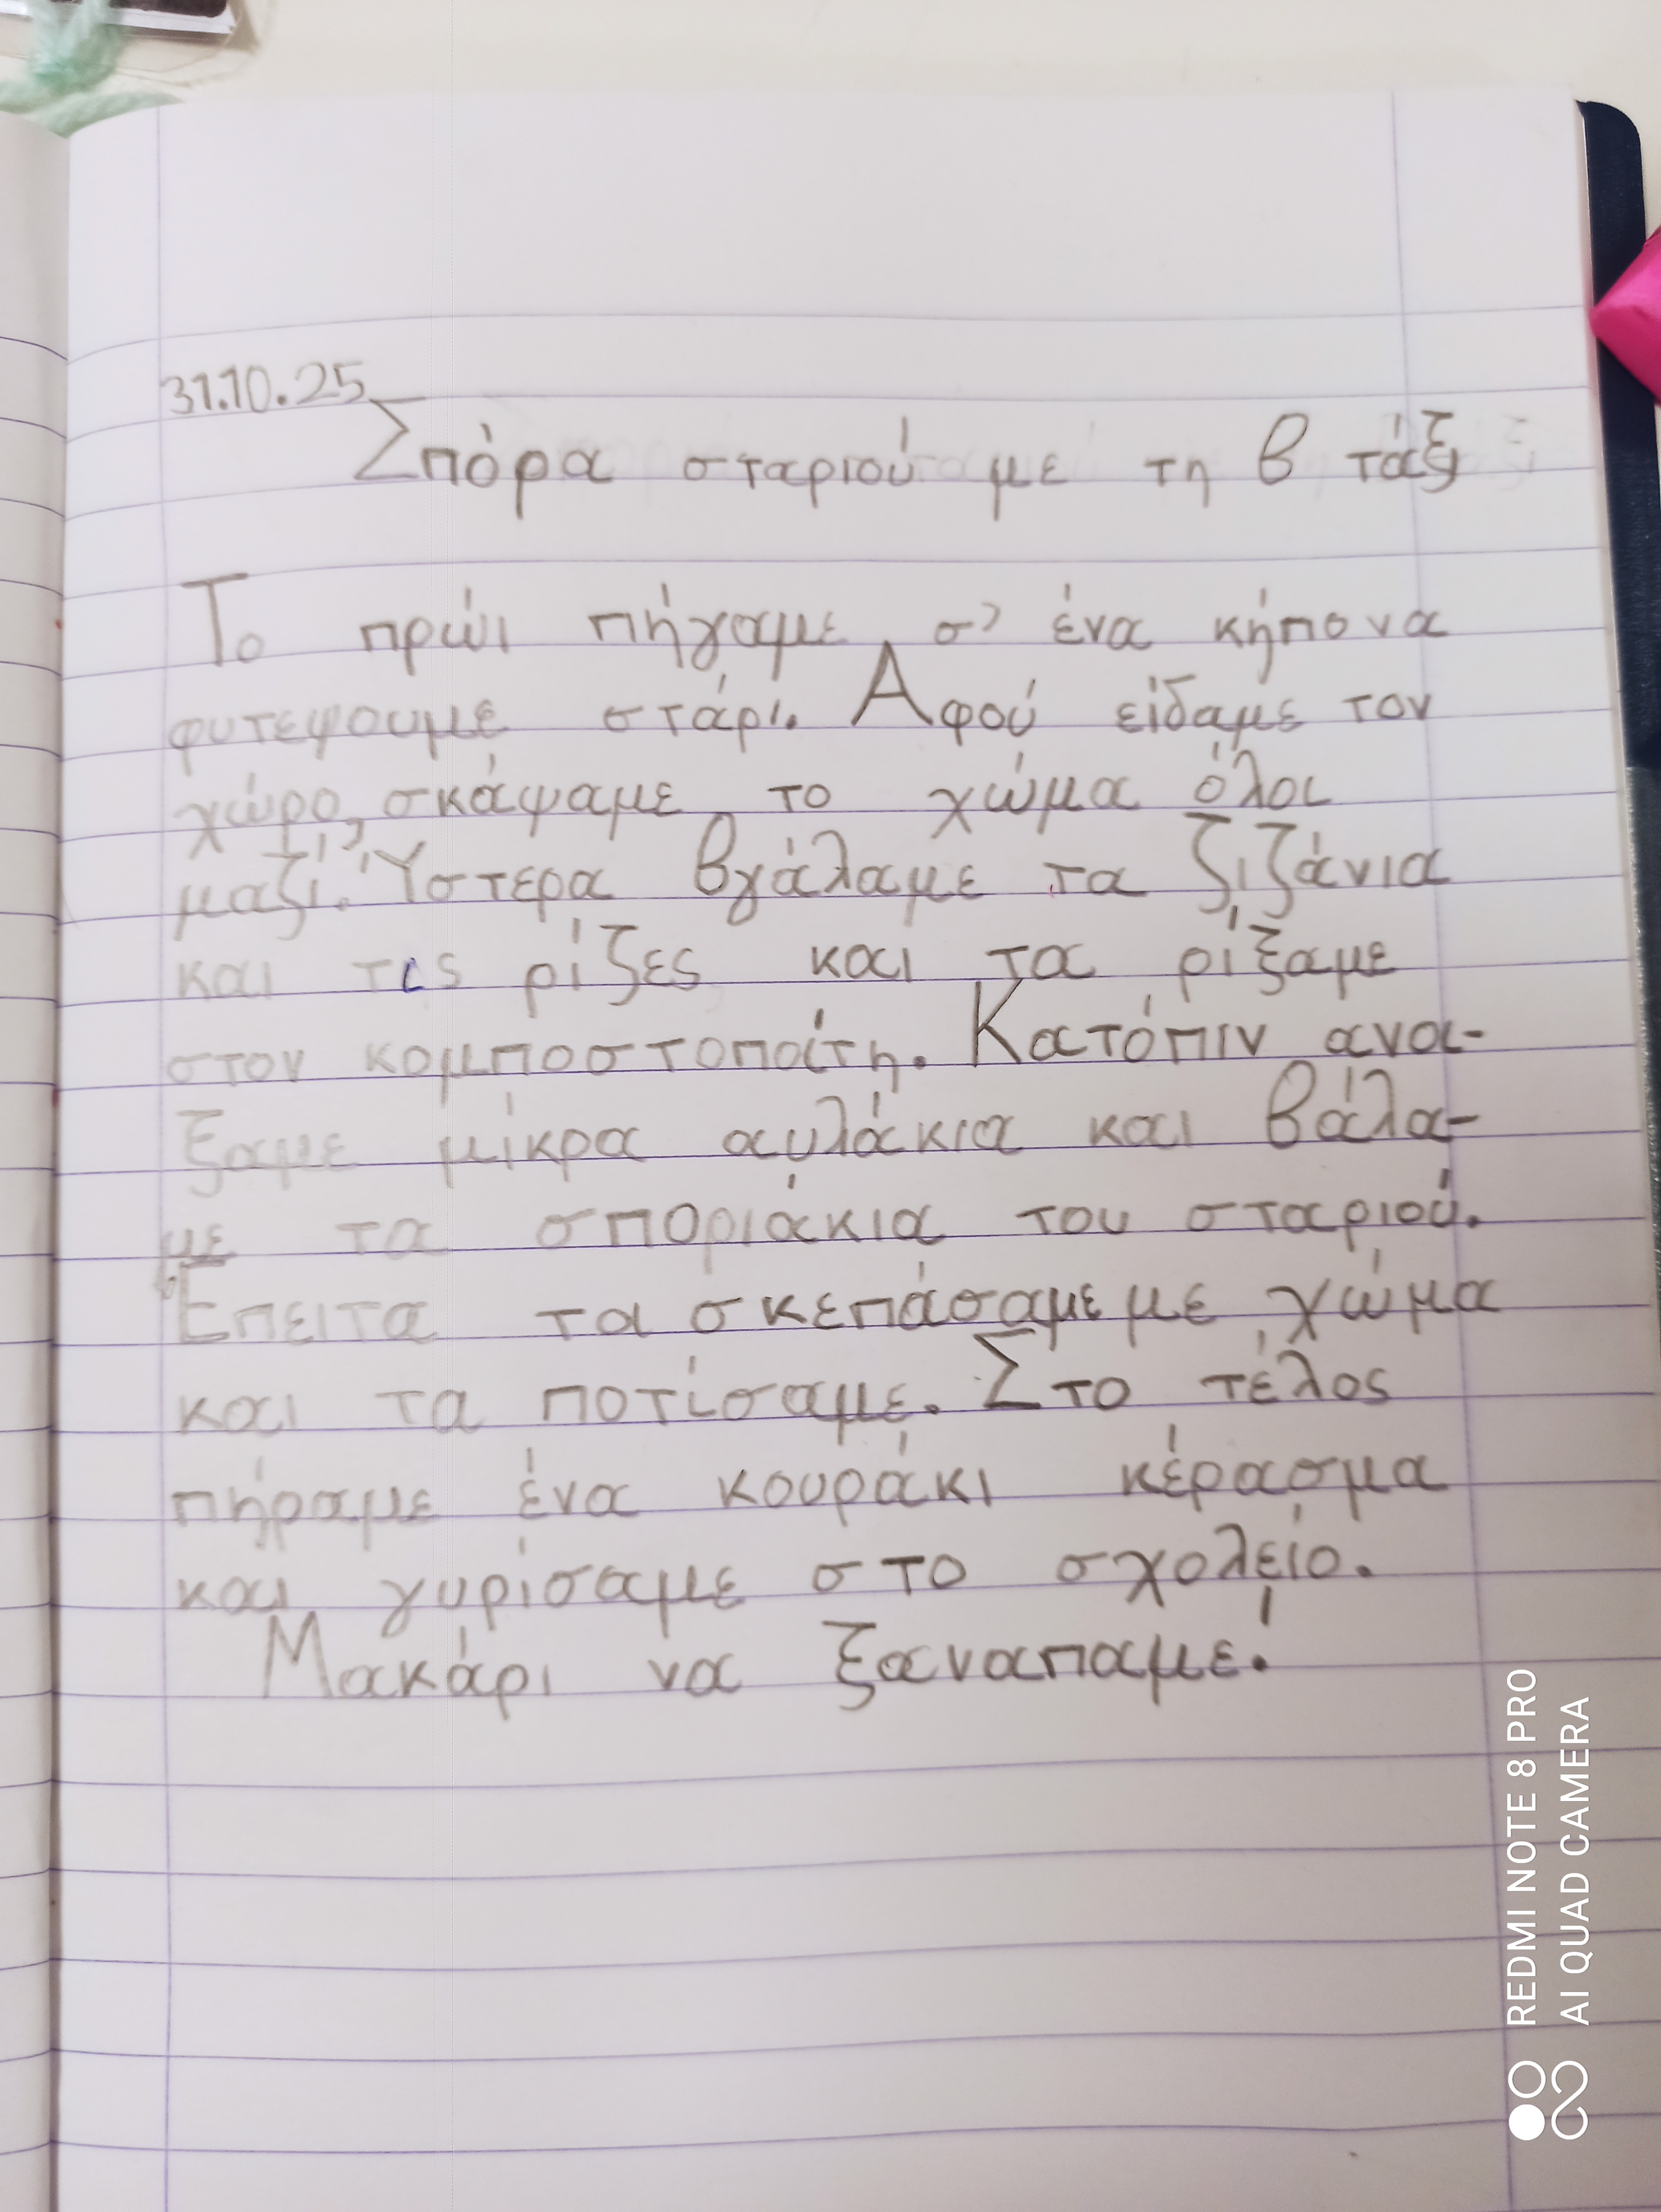 31.10.25
Σπόρα σταριού με τη β τάξη
Το πρώι πήγαμε σ' ένα κήπο να
φυτεψουμε στάρι. Αφού είδαμε τον
χώρο, σκάψαμε το χώμα όλοι
μαζί. Ύστερα βγάλαμε τα ζιζάνια
και τις ρίζες και τα ρίξαμε
στον κομποστοποίτη. Κατόπιν ανοι-
ξαμε μίκρα αυλάκια και βάλα-
με τα σποριάκια του σταριού.
Έπειτα τα σκεπάσαμε με χώμα
και τα ποτίσαμε. Στο τέλος
πήραμε ένα κουράκι κέρασμα
και γυρίσαμε στο σχολείο.
Μακάρι να ξαναπαμε!
REDMI NOTE 8 PRO
AI QUAD CAMERA